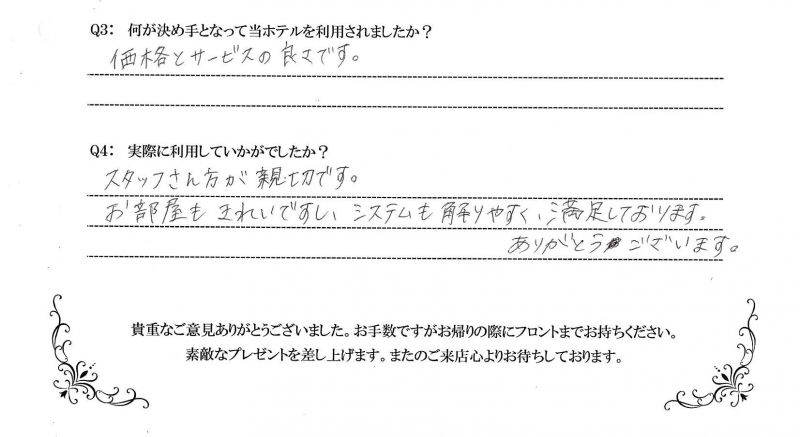 Q3： 何が決め手となって当ホテルを利用されましたか？
価格とサービスの良さです。
Q4： 実際に利用していかがでしたか？
スタッフさん方が親切です。
お部屋もきれいですし、システムも解りやすく、満足しております。
ありがとうございます。
貴重なご意見ありがとうございました。お手数ですがお帰りの際にフロントまでお持ちください。
素敵なプレゼントを差し上げます。またのご来店心よりお待ちしております。